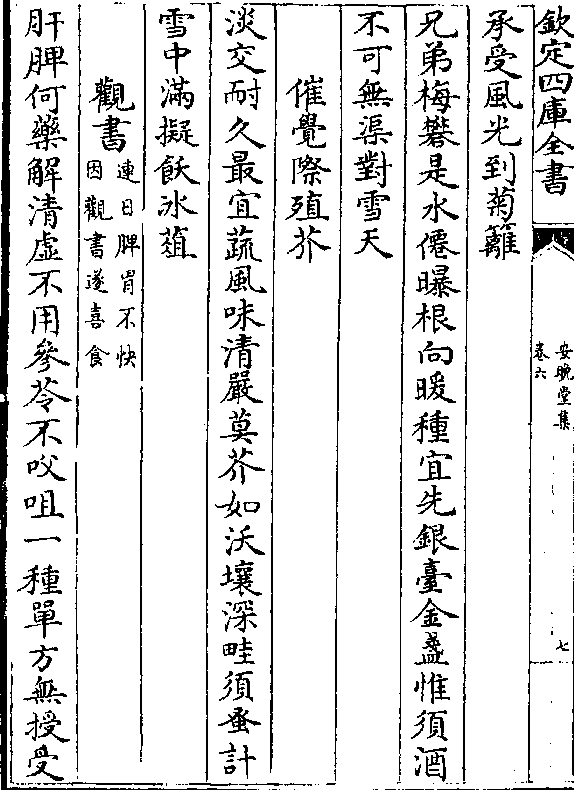 欽定四庫全書
安晚堂集
卷六
七
承受風光到菊籬
兄弟梅礬是水僊曝根向暖種宜先銀臺金盞惟須酒
不可無渠對雪天
催覺際殖芥
淡交耐久最宜蔬風味清嚴莫芥如沃壤深畦須蚤計
雪中滿擬飫冰葅
觀書連日脾胃不快
因觀書遂喜食
肝脾何藥解清虛不用參苓不㕮咀一種單方無授受